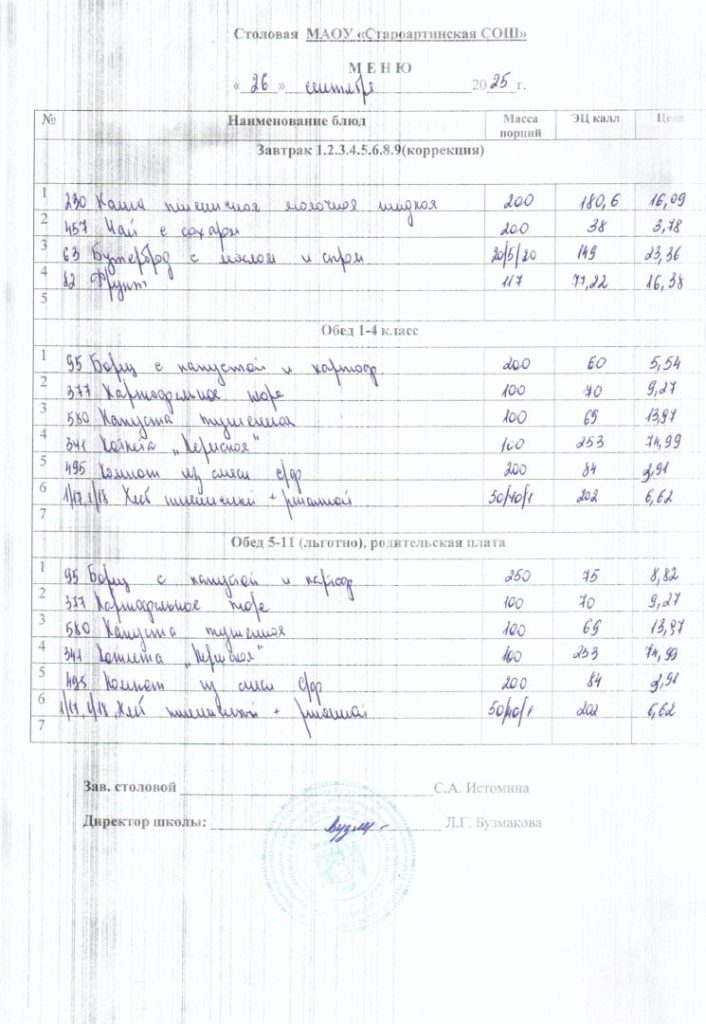 Столовая МАОУ «Староартинская СОШ»
М Е Н Ю
« 26 » сентября 2025 г.
№ Наименование блюд Масса порций ЭЦ калл Цена
Завтрак 1.2.3.4.5.6.8.9(коррекция)
1 230 Каша пшеничная молочная жидкая 200 180,6 16,09
2 457 Чай с сахаром 200 38 3,78
3 63 Бутерброд с маслом и сыром 20/5/20 149 23,36
4 82 Фрукт 117 77,22 16,38
5
Обед 1-4 класс
1 95 Борщ с капустой и картоф. 200 60 5,54
2 377 Картофельное пюре 100 70 9,27
3 580 Капуста тушенная 100 69 13,97
4 341 Котлета „ " 100 253 74,99
5 495 Компот из смеси с/ф 200 84 2,91
6 1/17, 1/18 Хлеб пшеничный + ржаной 50/40/1 202 6,62
7
Обед 5-11 (льготно), родительская плата
1 95 Борщ с капустой и картоф 250 75 8,82
2 377 Картофельное пюре 100 70 9,27
3 580 Капуста тушеная 100 69 13,97
4 341 Котлета „ " 100 253 74,99
5 495 Компот из смеси с/ф 200 84 2,91
6 1/17, 1/18 Хлеб пшеничный + ржаной 50/40/1 202 6,62
7
Зав. столовой С.А. Истомина
Директор школы: Л.Г. Бузмакова